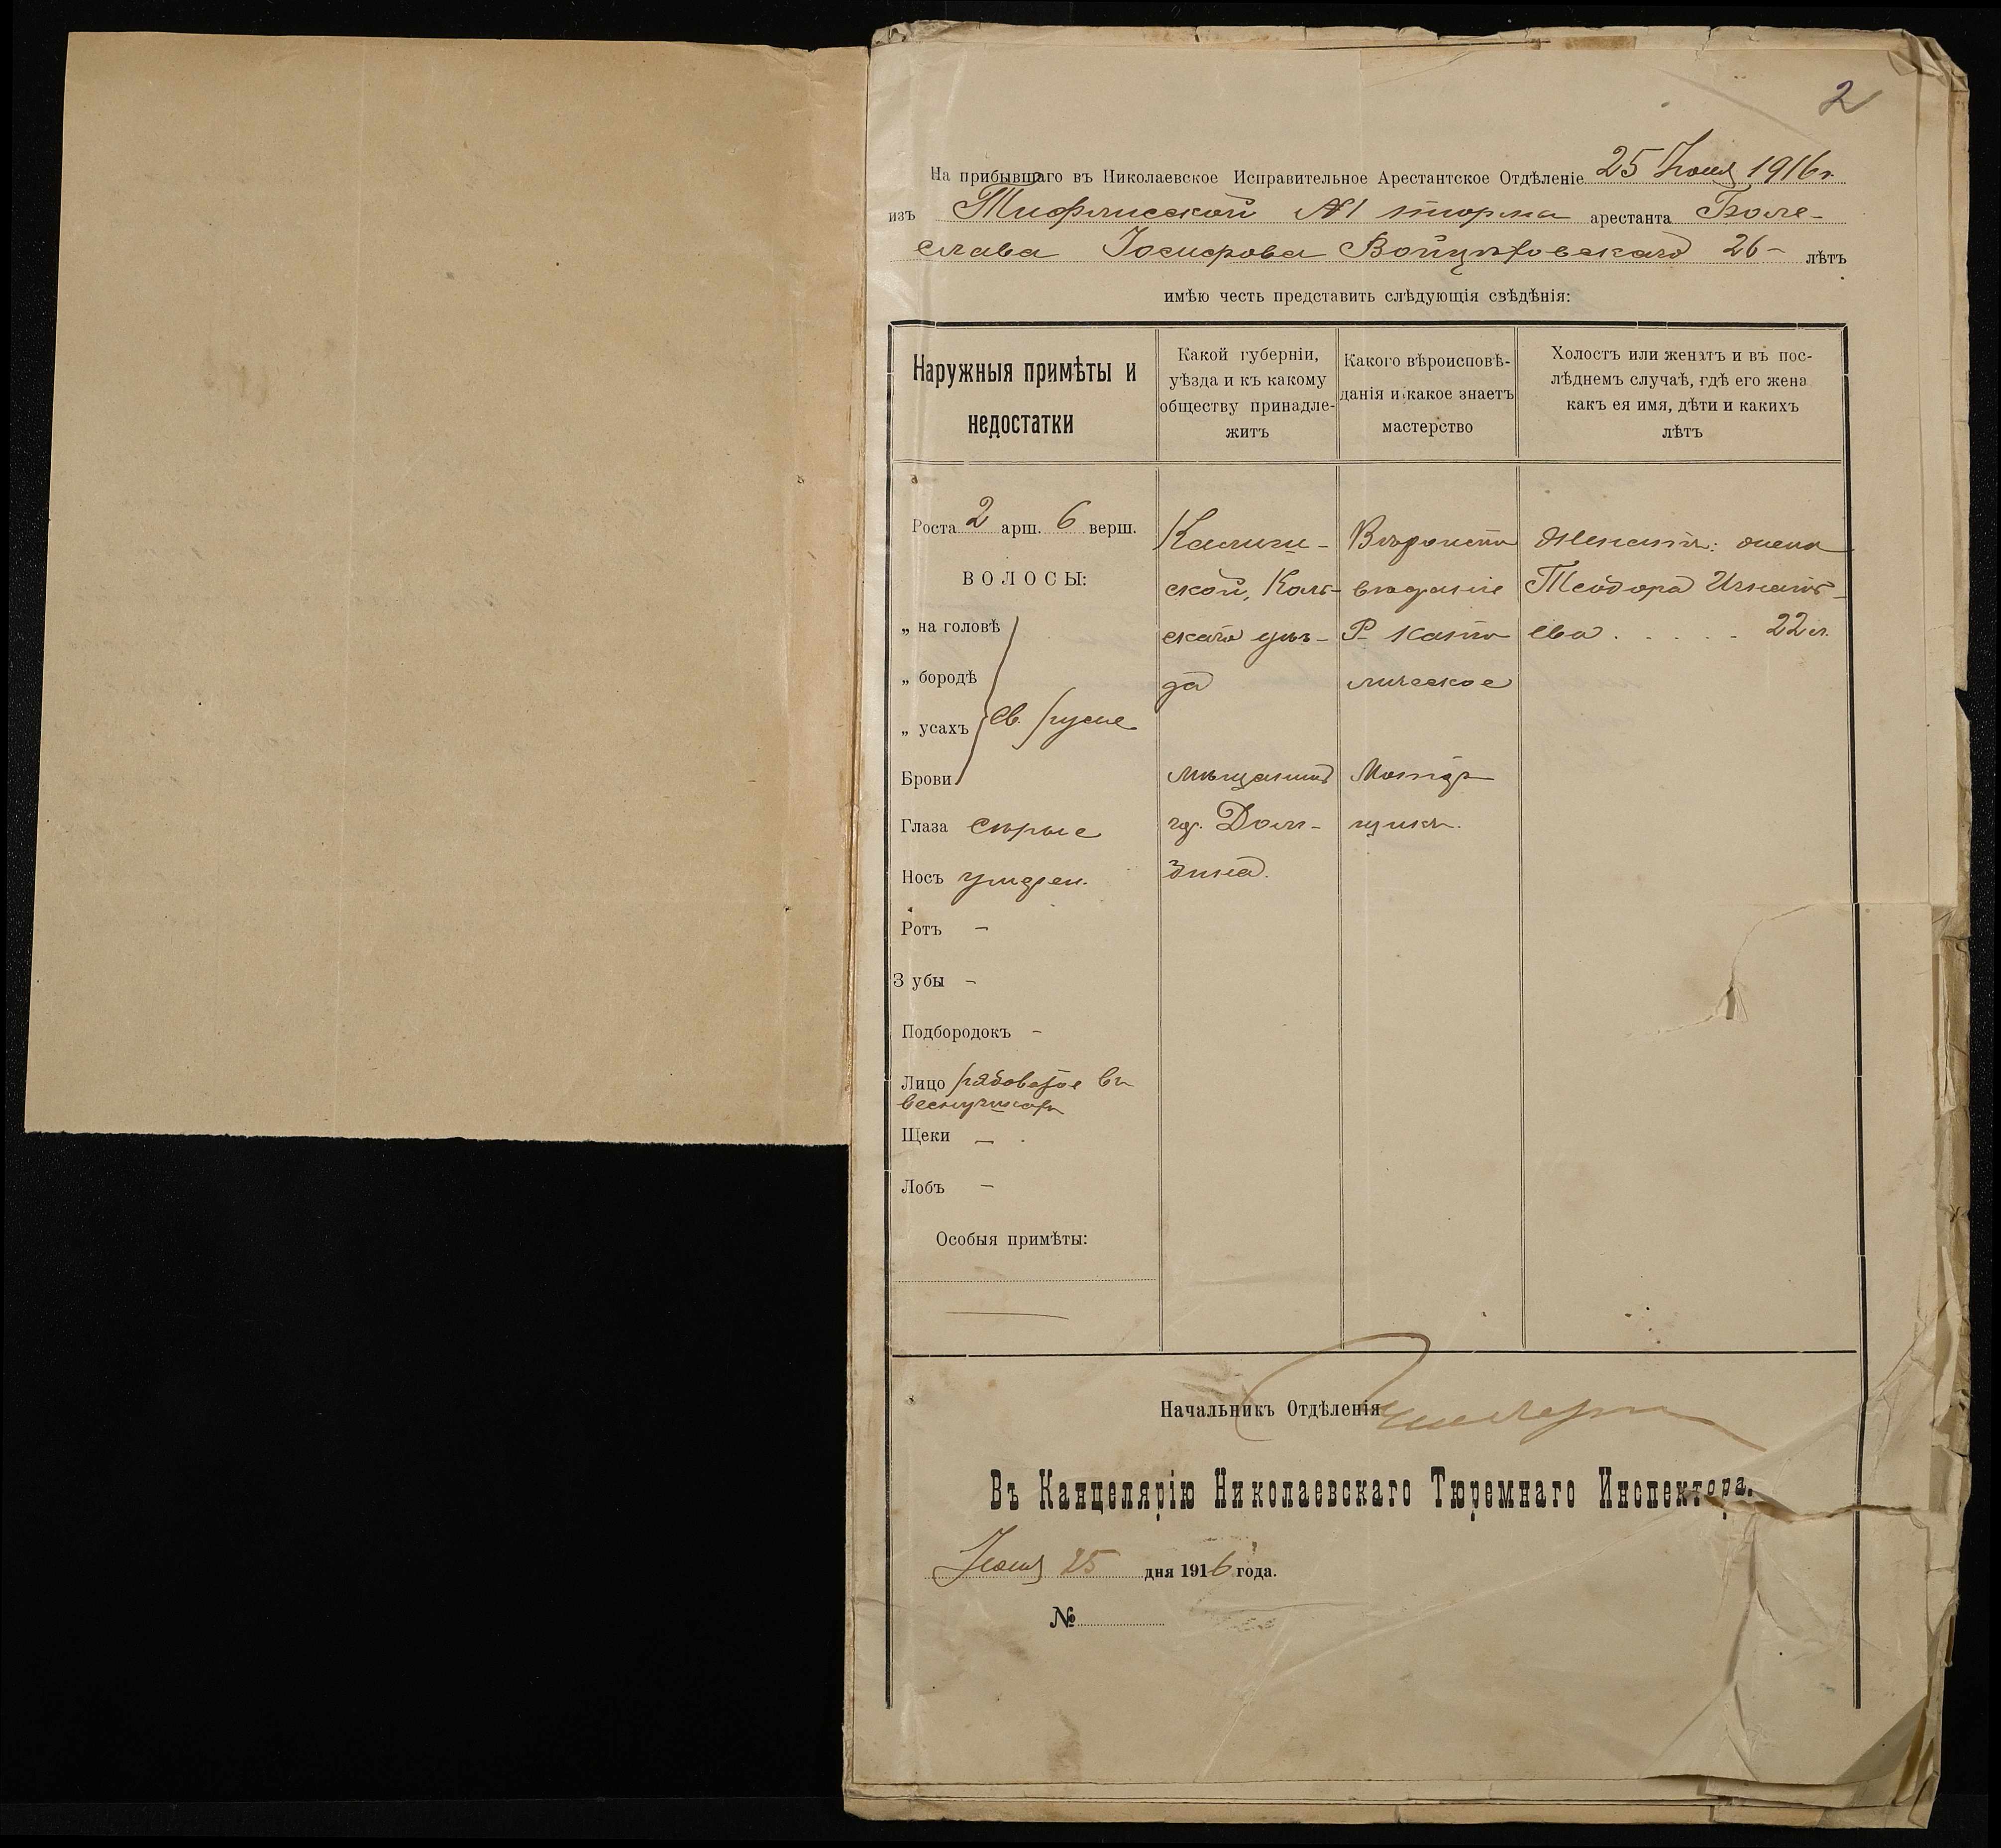 2
На прибывшаго въ Николаевское Исправительное Арестантское Отдѣленіе 25 Іюня 1916 г.
изъ Тифлисской №1 тюрма арестанта Боле-
слава Іосифова Войцѣховскаго 26 - лѣтъ
имѣю честь представить слѣдующія свѣдѣнія:
Наружныя примѣты и
недостатки
Какой губерніи,
уѣзда и къ какому
обществу принадле-
житъ
Какого вѣроисповѣ-
данія и какое знаетъ
мастерство
Холостъ или женатъ и въ пос-
лѣднемъ случаѣ, гдѣ его жена
какъ ея имя, дѣти и какихъ
лѣтъ
Роста 2 арш. 6 верш.
ВОЛОСЫ:
„ на головѣ
„ бородѣ
„ усахъ св. русые
Брови
Глаза сѣрые
Носъ умѣрен.
Ротъ -
Зубы -
Подбородокъ -
Лицо рябоватое въ
веснушкахъ
Щеки -
Лобъ -
Особыя примѣты:
Калиш-
ской, Коль-
скаго уѣз-
да
мѣщанинъ
гор. Дом-
бина.
Вѣроиспо
вѣданіе
Р. Като
лическое
Женатъ: жена
Теодора Игнать-
ева . . . . . 22 л.
Начальникъ Отдѣленія
Въ Канцелярію Николаевскаго Тюремнаго Инспектора.
Іюня 25 дня 1916 года.
№